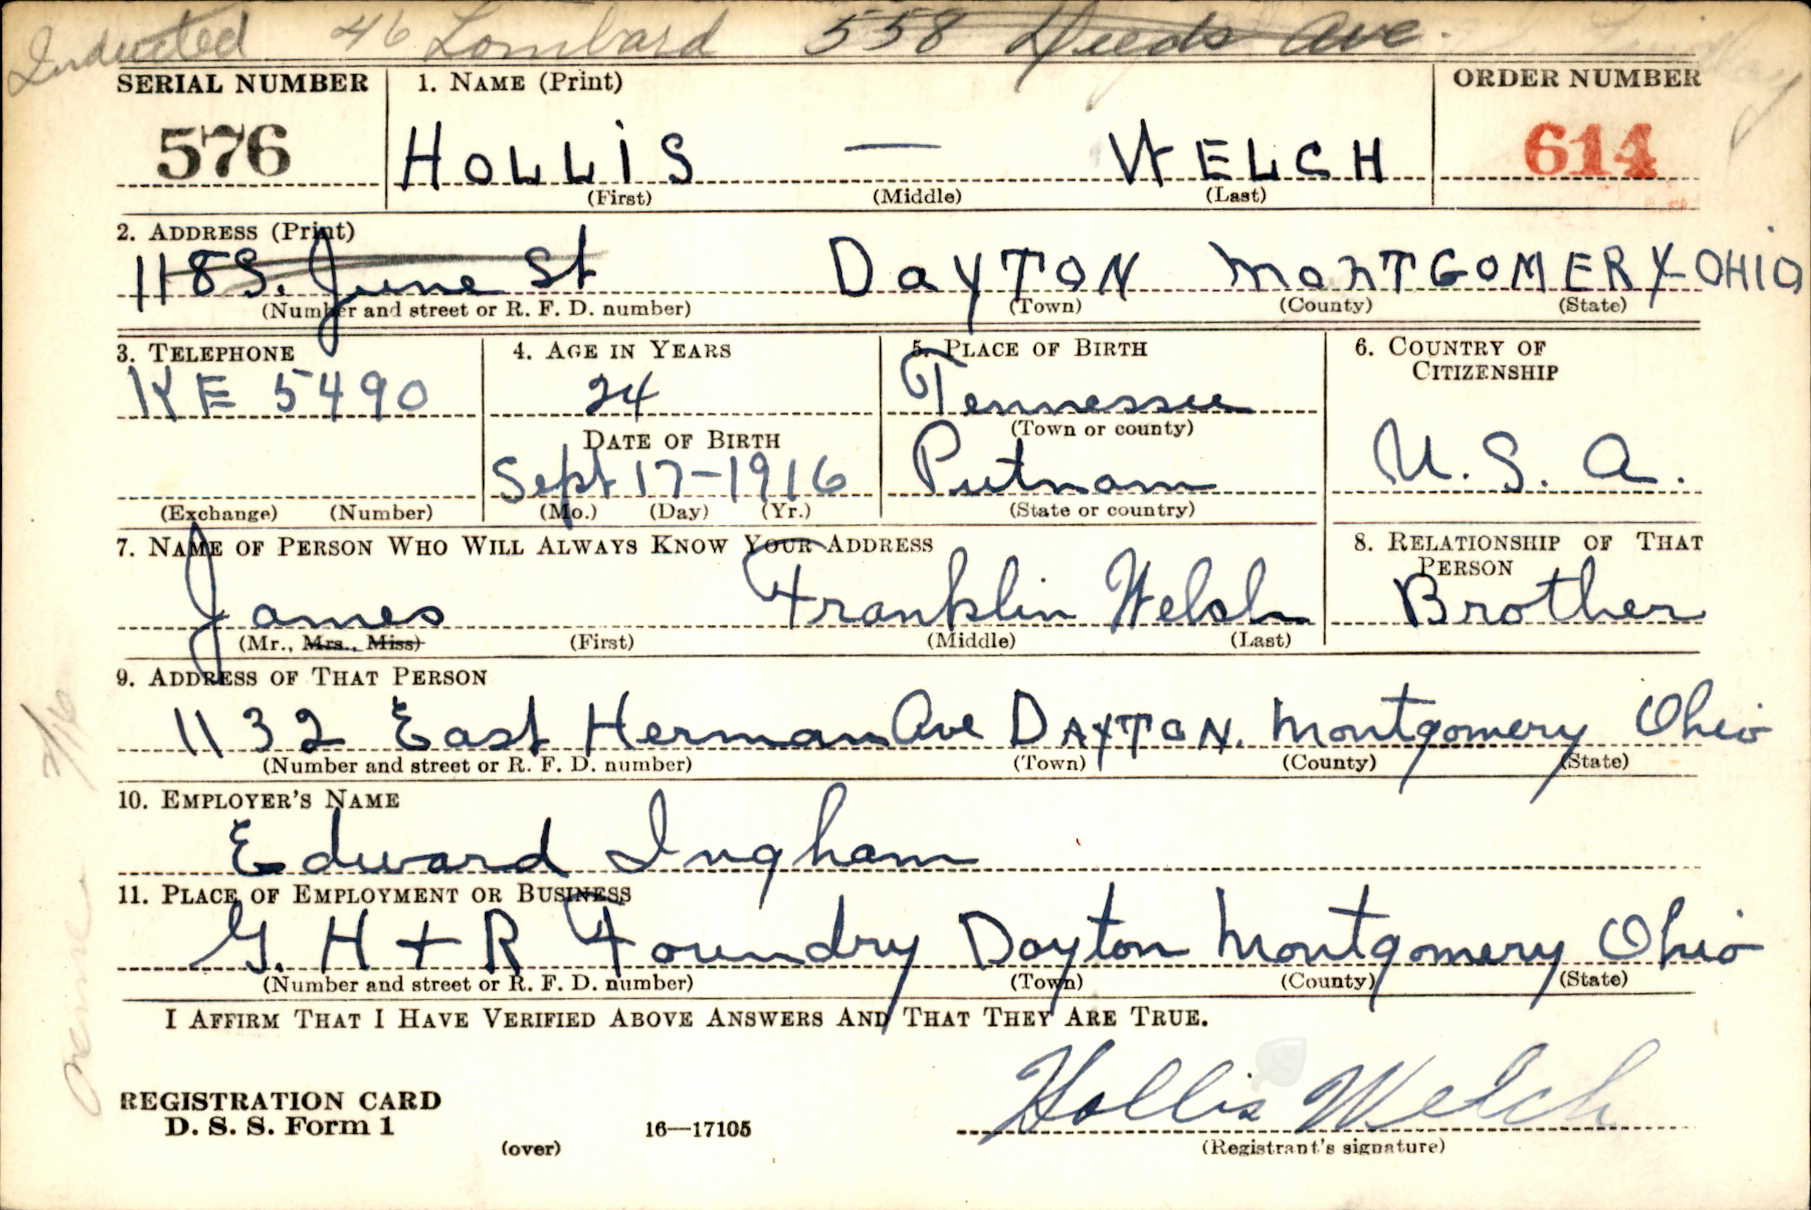 Inducted 46 Lombard 558 Deeds Ave.
SERIAL NUMBER 1. NAME (Print) ORDER NUMBER
576 HOLLIS — WELCH 614
(First) (Middle) (Last)
2. ADDRESS (Print)
118 S. June St DAYTON MONTGOMERY OHIO
(Number and street or R. F. D. number) (Town) (County) (State)
3. TELEPHONE 4. AGE IN YEARS 5. PLACE OF BIRTH 6. COUNTRY OF CITIZENSHIP
KE 5490 24 Tennessee
(Town or county)
DATE OF BIRTH
Sept 17-1916 Putnam U. S. A.
(Exchange) (Number) (Mo.) (Day) (Yr.) (State or country)
7. NAME OF PERSON WHO WILL ALWAYS KNOW YOUR ADDRESS 8. RELATIONSHIP OF THAT PERSON
James Franklin Welch Brother
(Mr., Mrs., Miss) (First) (Middle) (Last)
9. ADDRESS OF THAT PERSON
1132 East Herman Ave DAYTON. Montgomery Ohio
(Number and street or R. F. D. number) (Town) (County) (State)
10. EMPLOYER'S NAME
Edward Ingham
11. PLACE OF EMPLOYMENT OR BUSINESS
G. H + R Foundry Dayton Montgomery Ohio
(Number and street or R. F. D. number) (Town) (County) (State)
I AFFIRM THAT I HAVE VERIFIED ABOVE ANSWERS AND THAT THEY ARE TRUE.
Hollis Welch
REGISTRATION CARD
D. S. S. Form 1 16—17105 (Registrant's signature)
(over)